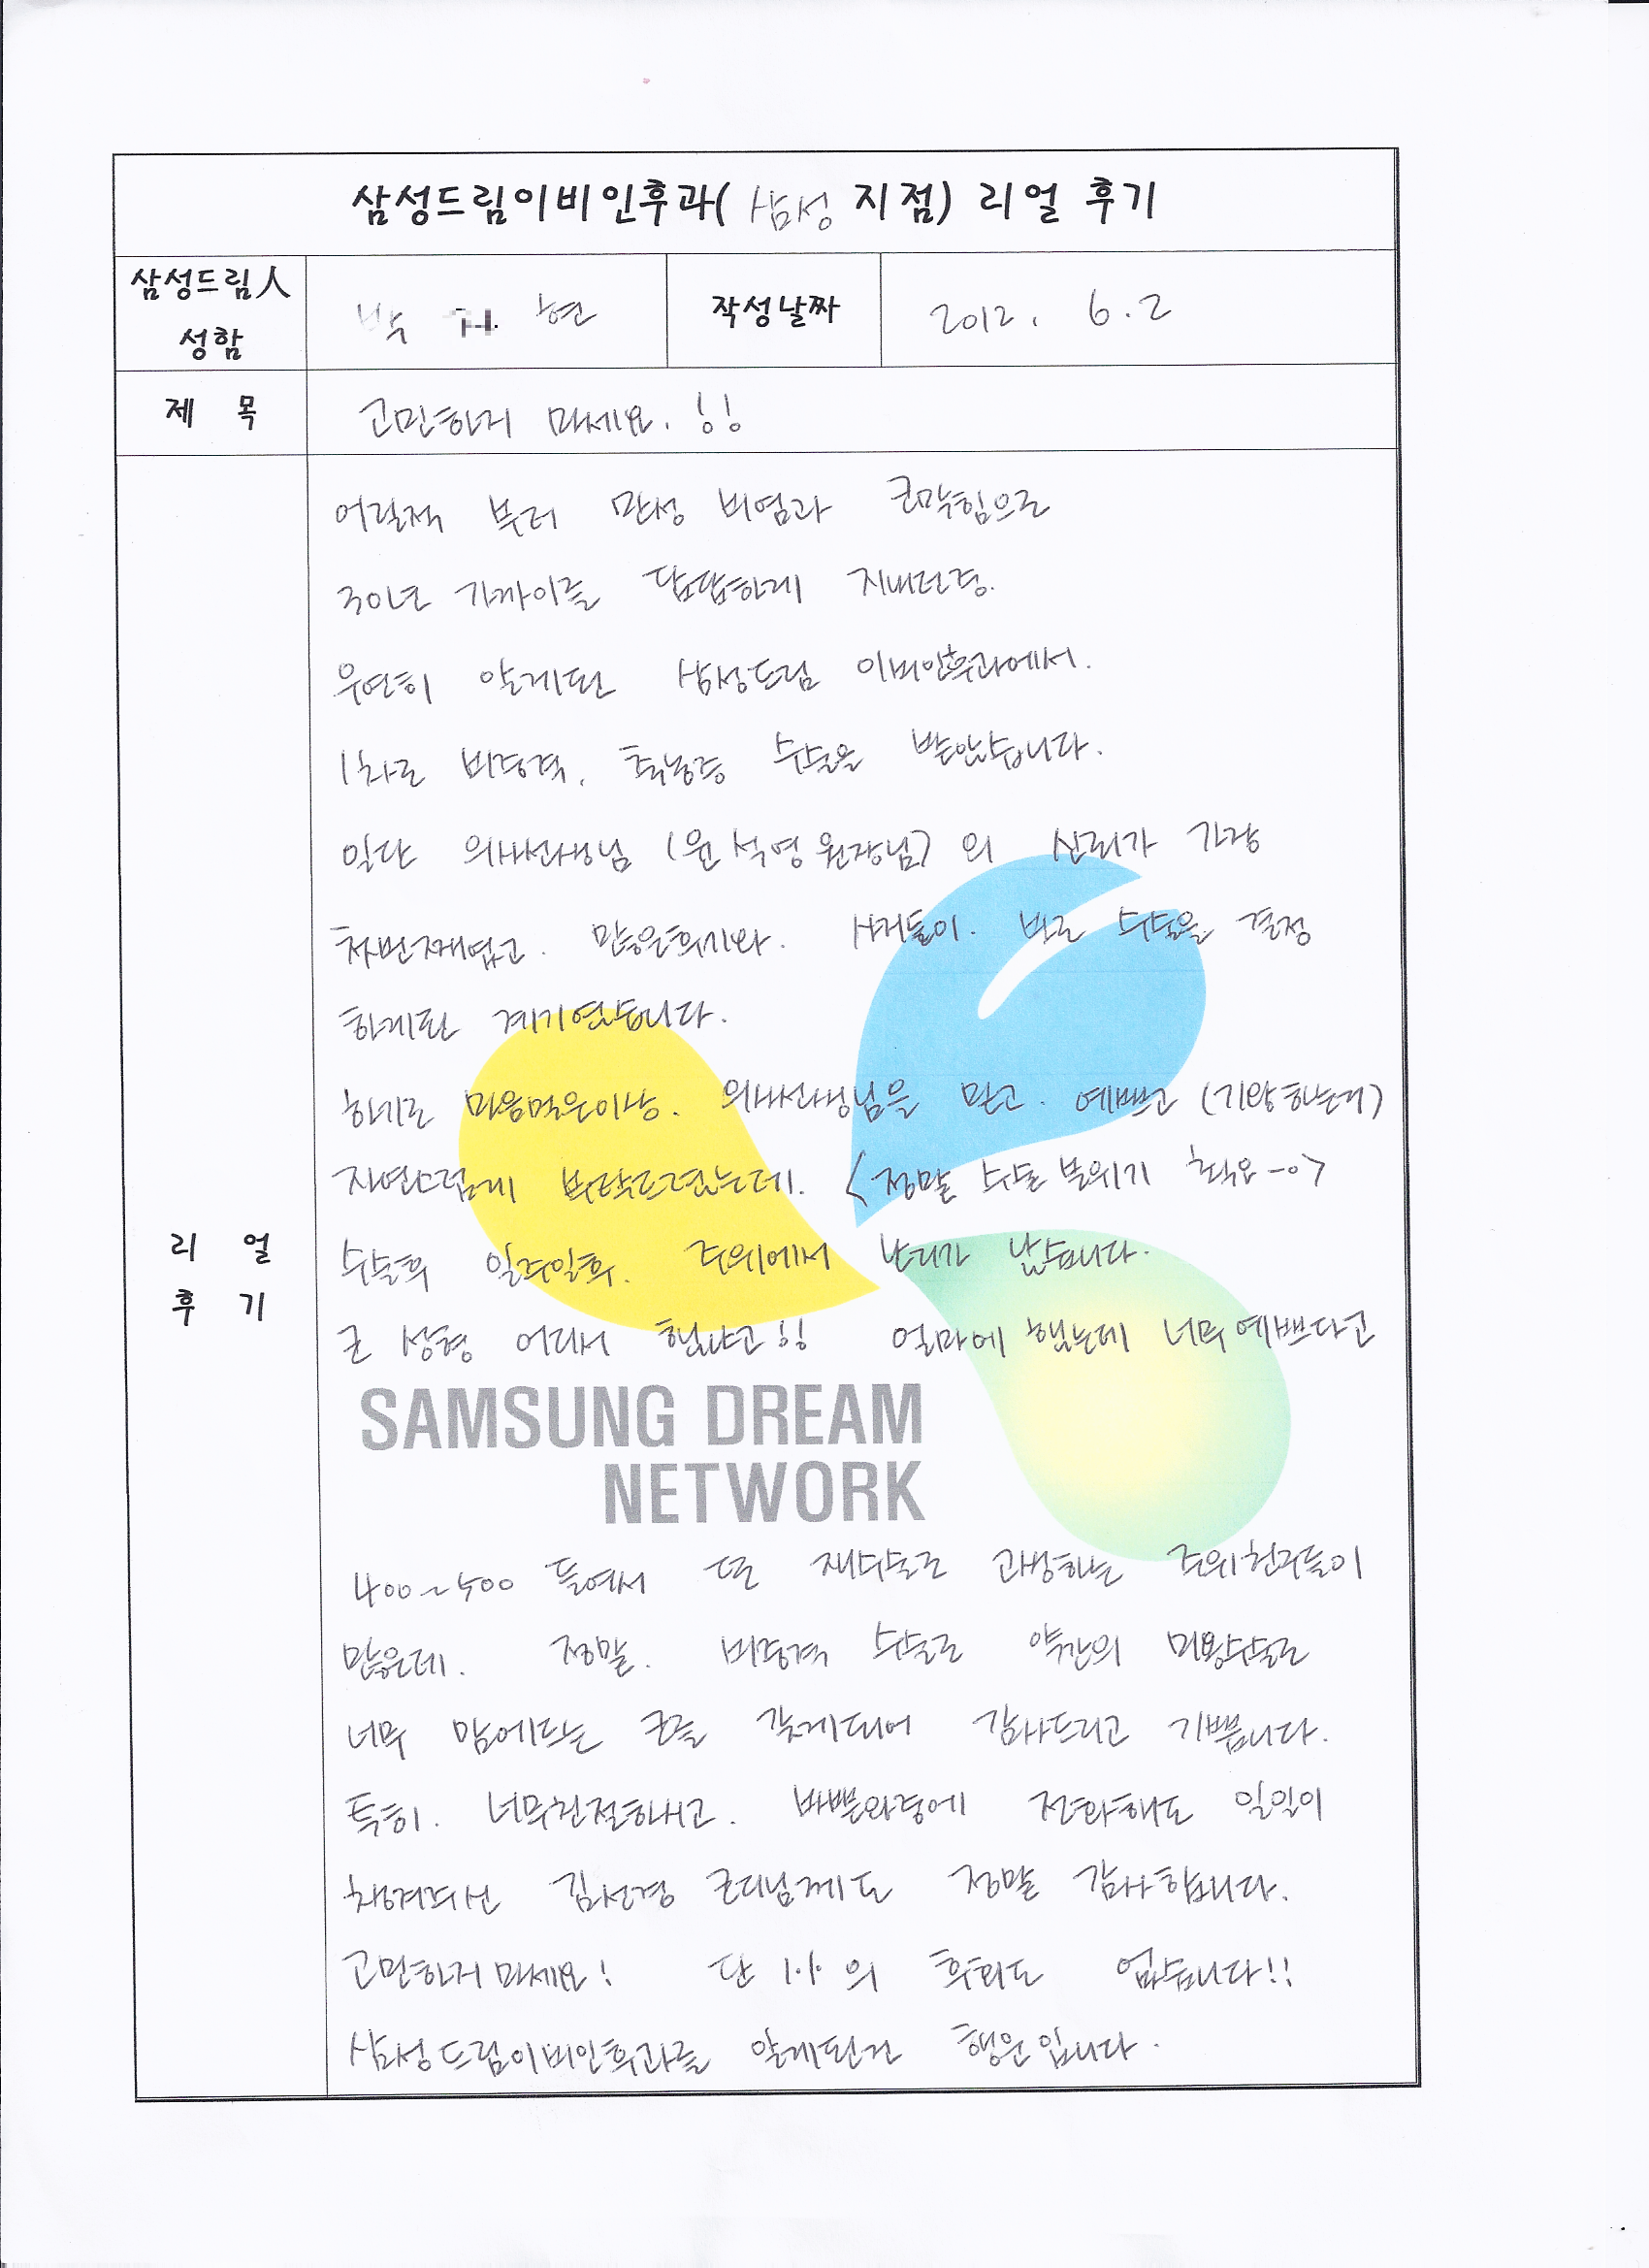 삼성드림이비인후과( 삼성 지점) 리얼 후기
삼성드림人
성함
박 현
작성날짜
2012. 6.2
제 목
고민하지 마세요.!!
리 얼
후 기
어릴적 부터 만성 비염과 코막힘으로
30년 가까이를 답답하게 지내던중.
우연히 알게된 삼성드림 이비인후과에서.
1차로 비중격. 축농증 수술을 받았습니다.
일단 의사선생님 (윤석영 원장님) 의 신뢰가 가장
첫번째였고. 많은후기와. 사진들이. 바로 수술을 결정
하게된 계기였습니다.
하기로 마음먹은이상. 의사선생님을 믿고. 예쁘고 (기왕하는거)
자연스럽게 부탁드렸는데. <정말 수술 분위기 최고 ->
수술후 일주일후. 주위에서 난리가 났습니다.
코 성형 어디서 했냐고!! 얼마에 했는데 너무예쁘다고
SAMSUNG DREAM
NETWORK
400~500 들여서 또 재수술로 고생하는 주위친구들이
많은데. 정말. 비중격 수술로 약간의 미용수술로
너무 맘에드는 코를 갖게되어 감사드리고 기쁩니다.
특히. 너무친절하시고. 바쁜와중에 전화해도 일일이
챙겨주신 김선경 코디님께도 정말 감사합니다.
고민하지마세요! 단 1%의 후회도 없습니다!!
삼성드림이비인후과를 알게된건 행운입니다.